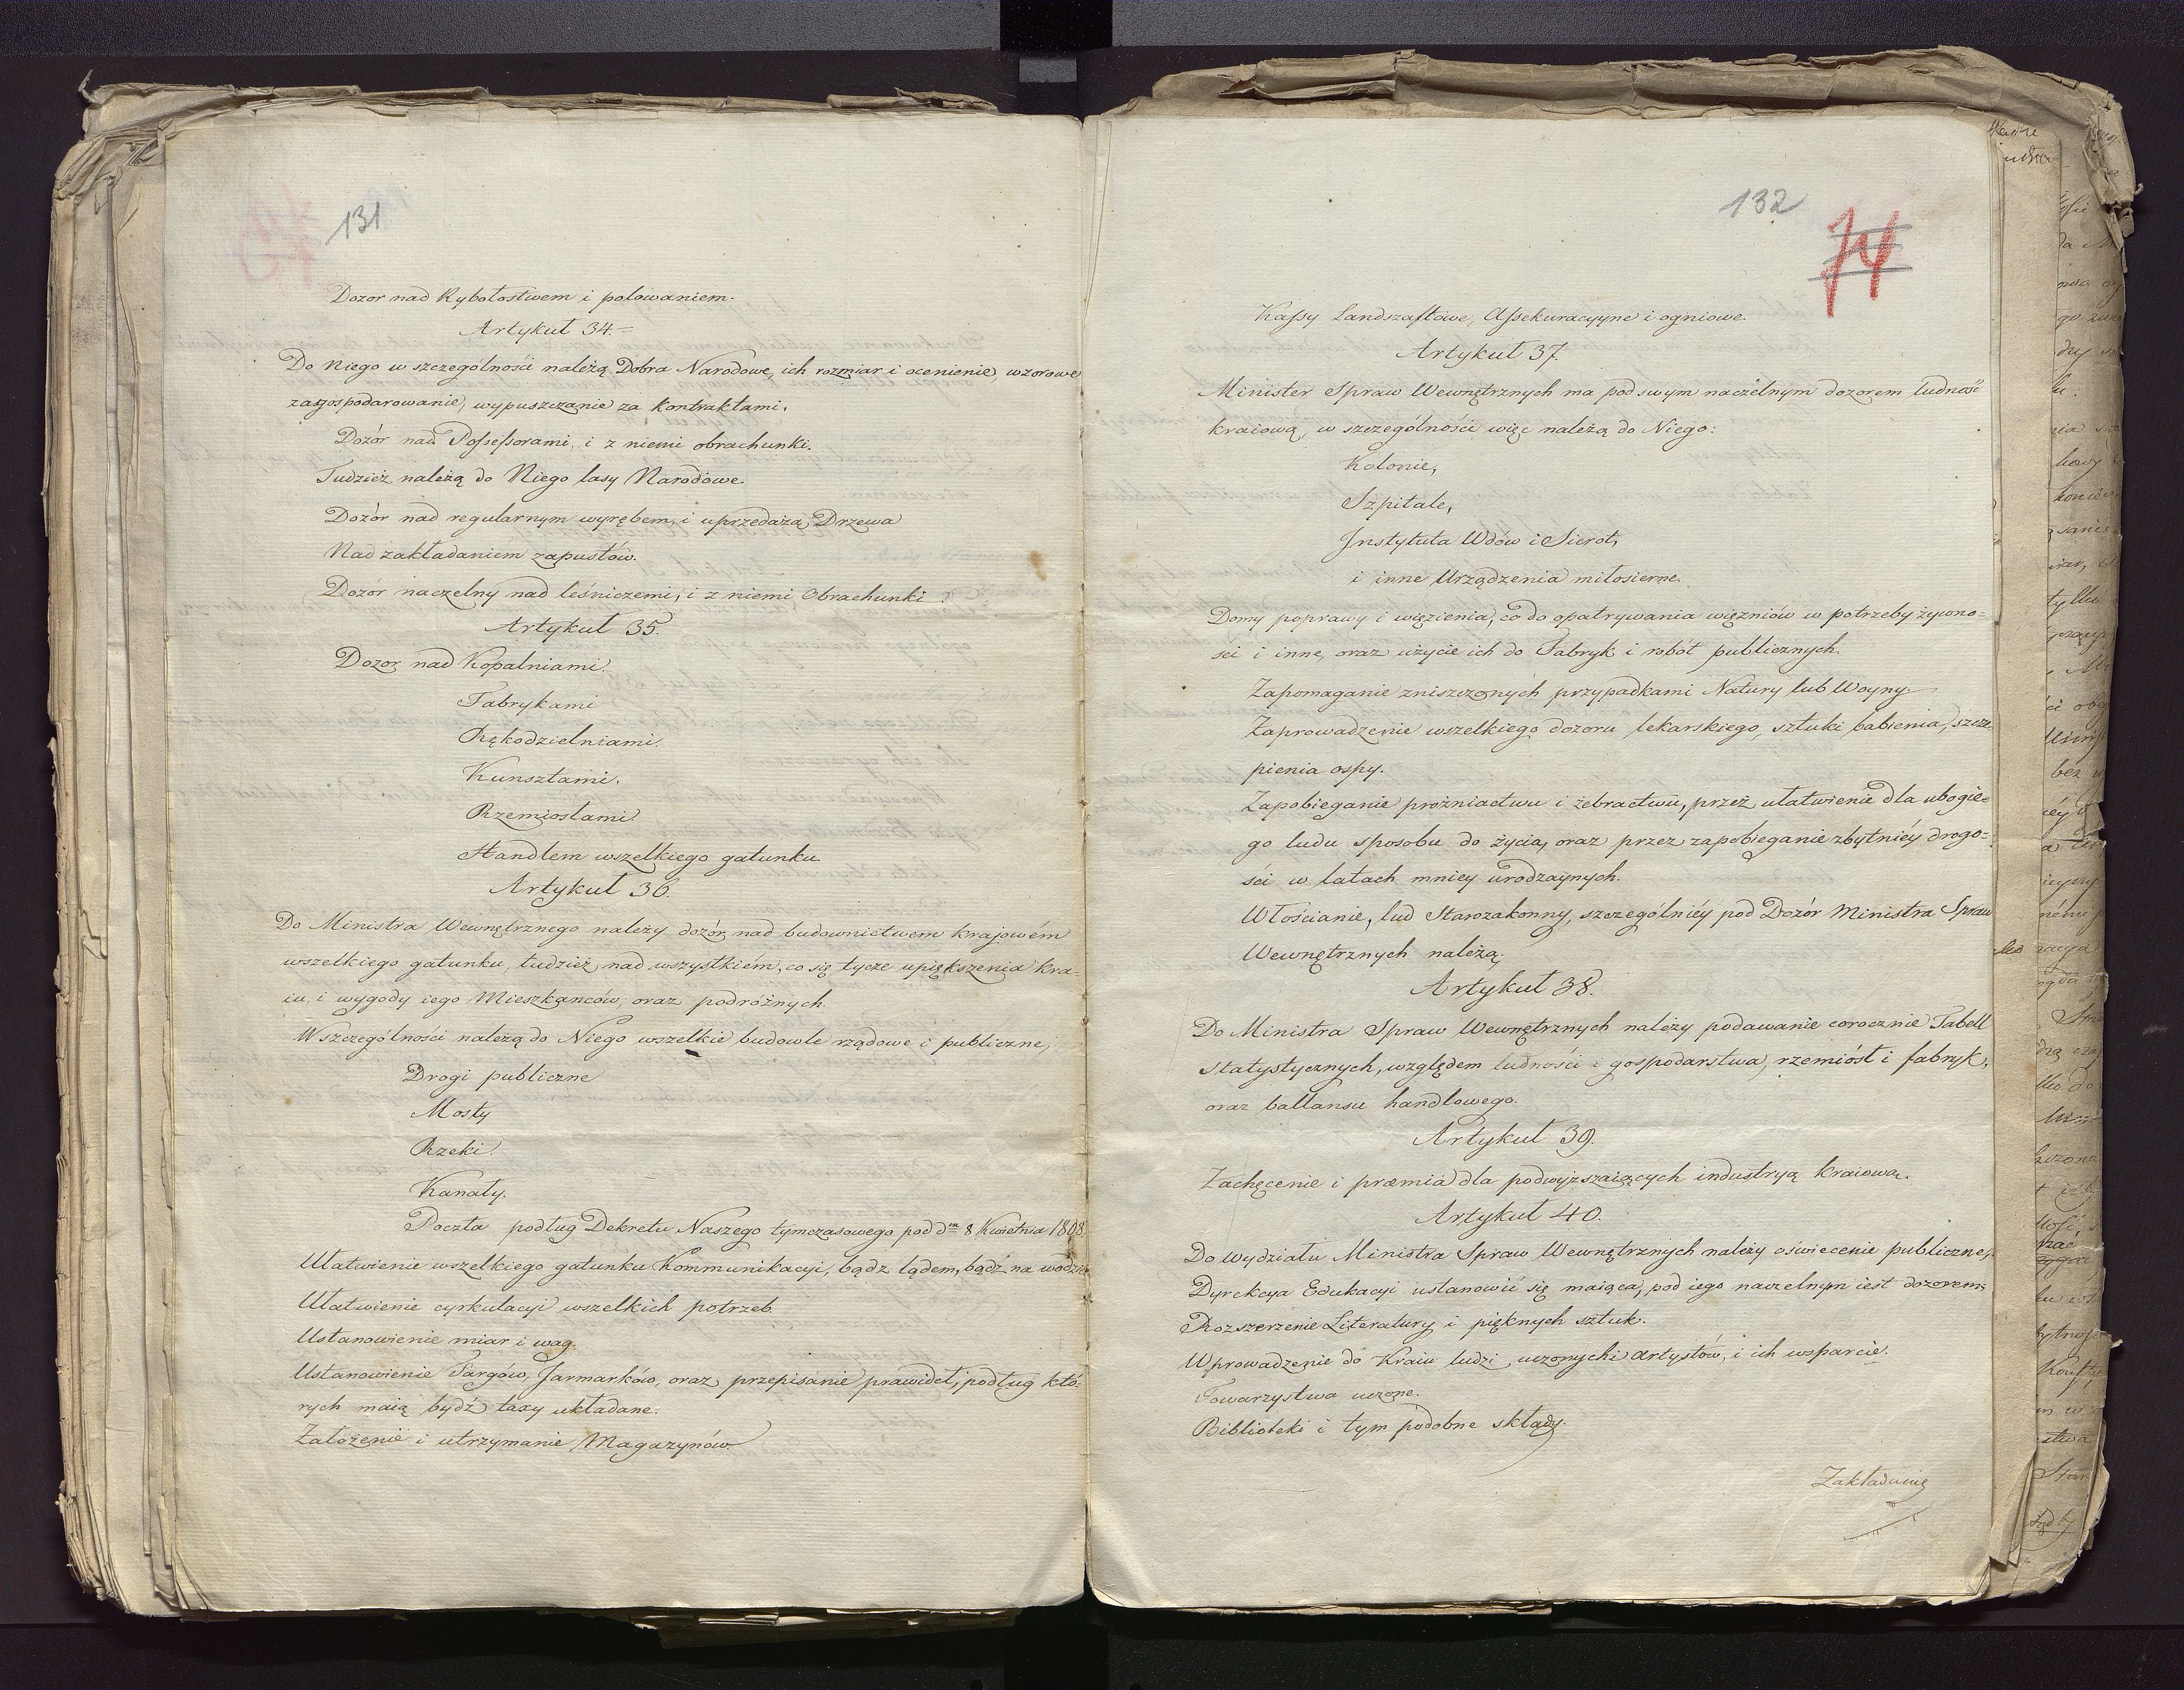 131
Dozor nad Rybołostwem i polowaniem.
Artykuł 34.=
Do Niego w szczególnośći należą Dobra Narodowe, ich rozmiar i ocenienie, wzorowe
zagospodarowanie, wypuszczanie za kontraktami.
Dozór nad Possessorami, i z niemi obrachunki.
Tudzież należą do Niego lasy Narodowe.
Dozór nad regularnym wyrębem, i uprzedażą Drzewa
Nad zakładaniem zapustów.
Dozór naczelny nad leśniczemi, i z niemi Obrachunki.
Artykuł 35.
Dozor nad Kopalniami
Fabrykami
Rękodzielniami.
Kunsztami.
Rzemiosłami
Handlem wszelkiego gatunku
Artykuł 36.
Do Ministra Wewnętrznego należy dozór nad budownictwem krajowém
wszelkiego gatunku, tudzież nad wszystkiém, co się tycze upiększenia kra-
iu, i wygody iego Mieszkańców, oraz podróżnych.
W szczególności należą do Niego wszelkie budowle rządowe i publiczne,
Drogi publiczne
Mosty
Rzeki.
Kanały.
Poczta podług Dekretu Naszego tymczasowego pod dm 8 Kwietnia 1808.
Ułatwienie wszelkiego gatunku Kommunikacyi, bądz lądem, bądź na wodzie
Ułatwienie cyrkulacyi wszelkich potrzeb.
Ustanowienie miar i wag.
Ustanowienie Targów, Jarmarków, oraz przepisanie prawideł, podług któ-
rych maią bydź taxy układane.
Założenie i utrzymanie Magazynów
132
74
Kassy Landszaftowe, Assekuracyyne i ogniowe.
Artykuł 37.
Minister Spraw Wewnętrznych ma pod swym naczelnym dozorem ludność
kraiową, w szczególnośći więc należą do Niego:
Kolonie,
Szpitale,
Instytuta Wdów i Sierot,
i inne Urządzenia miłosierne.
Domy poprawy i więzienia, co do opatrywania więzniów w potrzeby żywno-
ści i inne, oraz użycie ich do Fabryk i robót publicznych.
Zapomaganie zniszczonych przypadkami Natury lub Woyny.
Zaprowadzenie wszelkiego dozoru lekarskiego, sztuki babienia, szcze-
pienia ospy.
Zapobieganie prożniactwu i żebractwu, przez ułatwienie dla ubogie-
go ludu sposobu do życia, oraz przez zapobieganie zbytniéy drogo-
ści w latach mniey urodzaynych.
Włościanie, lud Starozakonny, szczególniéy pod Dozór Ministra Spraw
Wewnętrznych należą.
Artykuł 38.
Do Ministra Spraw Wewnętrznych należy podawanie corocznie Tabell
statystycznych, względem ludności i gospodarstwa, rzemiósł i fabryk,
oraz ballansu handlowego.
Artykuł 39.
Zachęcenie i præmia dla podwyższaiących industryą kraiową.
Artykuł 40.
Do wydziału Ministra Spraw Wewnętrznych należy oświecenie publiczne,
Dyrekcya Edukacyi ustanowić się maiąca, pod iego naczelnym iest dozorem,
Rozszerzenie Literatury i pięknych sztuk.
Wprowadzenie do Kraiu ludzi uczonych i Artystów, i ich wsparcie.
Towarzystwa uczone.
Biblioteki i tym podobne składy.
Zakładanie